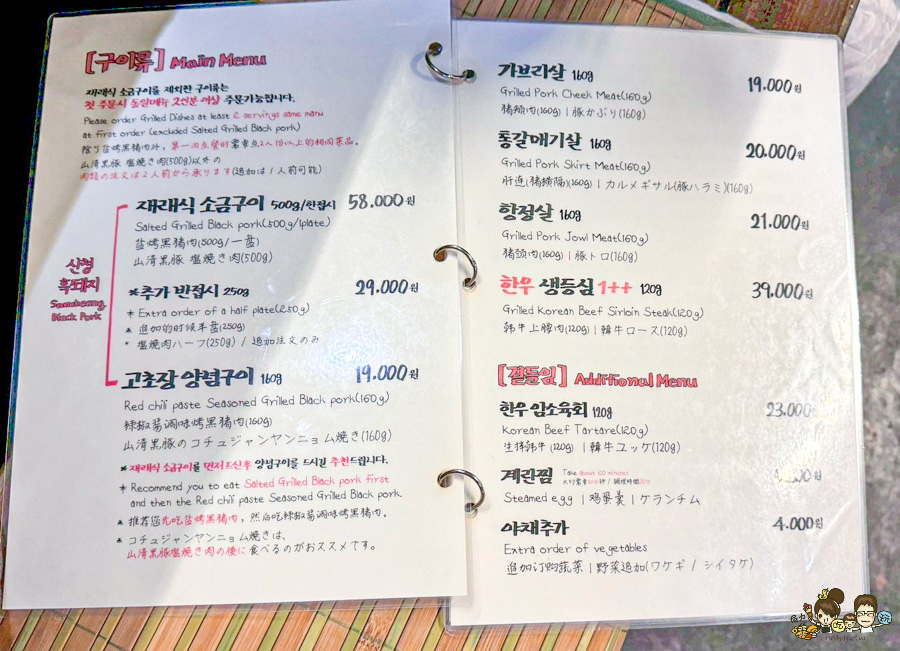 [구이류] Main Menu
재래식 소금구이를 제외한 구이류는
첫 주문시 동일메뉴 2인분 이상 주문가능합니다.
Please order Grilled Dishes at least 2 servings same menu
at first order (excluded Salted Grilled Black pork)
除了盐烤黑猪肉外，第一次点餐时需要点2人份以上的相同菜品。
山清黒豚 塩焼き肉(500g)以外の
肉類の注文は2人前から承ります(追加は1人前可能)
산청
흑돼지
Sancheong
Black Pork
재래식 소금구이 500g/한접시 58.000원
Salted Grilled Black pork(500g/1plate)
盐烤黑猪肉(500g/一盘)
山清黒豚 塩焼き肉(500g)
*추가 반접시 250g 29.000원
* Extra order of a half plate(250g)
* 追加的时候半盘(250g)
* 塩焼肉ハーフ(250g) / 追加注文のみ
고초장 양념구이 160g 19.000원
Red chili paste Seasoned Grilled Black pork(160g)
辣椒酱调味烤黑猪肉(160g)
山清黒豚のコチュジャンヤンニョム焼き(160g)
* 재래식 소금구이를 먼저드신후 양념구이를 드시길 추천드립니다.
* Recommend you to eat Salted Grilled Black pork first
and then the Red chili paste Seasoned Grilled Black pork
* 推荐您先吃盐烤黑猪肉，然后吃辣椒酱调味烤黑猪肉.
* コチュジャンヤンニョム焼きは、
山清黒豚塩焼き肉の後に食べるのがおススメです。
가브리살 160g 19.000원
Grilled Pork Cheek Meat(160g)
猪颊肉(160g) | 豚かぶり(160g)
통갈매기살 160g 20.000원
Grilled Pork Skirt Meat(160g)
肝连(猪横隔)(160g) | カルメギサル(豚ハラミ)(160g)
항정살 160g 21.000원
Grilled Pork Jowl Meat(160g)
猪颈肉(160g) | 豚トロ(160g)
한우 생등심 1++ 120g 39.000원
Grilled Korean Beef Sirloin Steak(120g)
韩牛上腰肉(120g) | 韓牛ロース(120g)
[곁들임] Additional Menu
한우 암소육회 120g 23.000
Korean Beef Tartare(120g)
生拌韩牛(120g) | 韓牛ユッケ(120g)
계란찜 Take about 20 minutes
Steamed egg | 鸡蛋羹 | ケランチム
야채추가 4.000원
Extra order of vegetables
追加订购蔬菜 | 野菜追加(ワケギ / シイタケ)